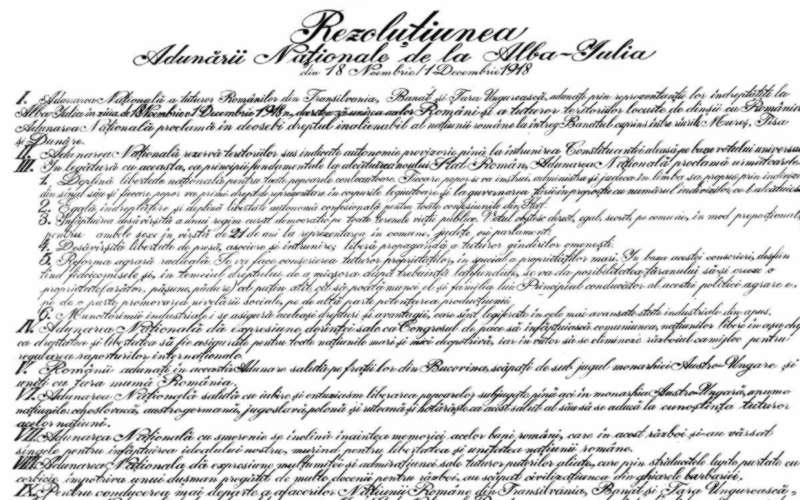 Rezoluţiunea
Adunării Naţionale de la Alba-Iulia
din 18 Noembrie/1 Decembrie 1918
I. Adunarea Naţională a tuturor Românilor din Transilvania, Banat şi Ţara Ungurească, adunaţi prin reprezentanţii lor îndreptăţiţi la
Alba Iulia în ziua de 18 Noembrie/1 Decembrie 1918, decretează unirea acelor Români şi a tuturor teritoriilor locuite de dînşii cu România.
Adunarea Naţională proclamă îndeosebi dreptul inalienabil al naţiunii române la întreg Banatul cuprins între rîurile Mureş, Tisa
şi Dunăre.
II. Adunarea Naţională rezervă teritoriilor sus indicate autonomie provizorie pînă la întrunirea Constituantei aleasă pe baza votului universal
III. În legătură cu aceasta, ca principii fundamentale la alcătuirea noului Stat Român, Adunarea Naţională proclamă următoarele:
1. Deplină libertate naţională pentru toate popoarele conlocuitoare. Fiecare popor se va instrui, administra şi judeca în limba sa proprie prin indivizi
din sînul său şi fiecare popor va primi drept de reprezentare în corpurile legiuitoare şi la guvernarea ţării în proporţie cu numărul indivizilor ce-l alcătuiesc
2. Egală îndreptăţire şi deplină libertate autonomă confesională pentru toate confesiunile din Stat.
3. Înfăptuirea desăvîrşită a unui regim curat democratic pe toate terenele vieţii publice. Votul obştesc, direct, egal, secret, pe comune, în mod proporţional,
pentru ambele sexe în vîrstă de 21 de ani la reprezentarea în comune, judeţe ori parlament.
4. Desăvîrşită libertate de presă, asociere şi întrunire; liberă propagandă a tuturor gîndurilor omeneşti.
5. Reforma agrară radicală. Se va face conscrierea tuturor proprietăţilor, în special a proprietăţilor mari. În baza acestei conscrieri, desfiin
ţînd fideicomisele şi, în temeiul dreptului de a micşora după trebuinţă latifundiile, se va da posibilitatea ţăranului să-şi creeze o
proprietate (arător, păşune, pădure) cel puţin atît cît să poată munci el şi familia lui. Principiul conducător al acestei politici agrare e,
pe de o parte promovarea nivelării sociale, pe de altă parte potenţarea producţiunii.
6. Muncitorimii industriale i se asigură aceleaşi drepturi şi avantagii, care sînt legiferate în cele mai avansate state industriale din apus.
IV. Adunarea Naţională dă expresiune dorinţei sale ca Congresul de pace să înfăptuiască comuniunea naţiunilor libere în aşa chip
ca dreptatea şi libertatea să fie asigurate pentru toate naţiunile mari şi mici deopotrivă, iar în viitor să se elimineze războiul ca mijloc pentru
regularea raporturilor internaţionale.
V. Românii adunaţi în această Adunare salută pe fraţii lor din Bucovina, scăpaţi de sub jugul monarhiei Austro-Ungare şi
uniţi cu ţara mumă România.
VI. Adunarea Naţională salută cu iubire şi entuziasm liberarea popoarelor subjugate pînă aci în monarhia Austro-Ungară, anume
naţiunile cehoslovacă, austrogermană, jugoslavă, polonă şi ruteană şi hotărăşte ca acest salut al său să se aducă la cunoştinţa tuturor
acelor naţiuni.
VII. Adunarea Naţională cu smerenie se închină înaintea memoriei acelor bravi români, care în acest război şi-au vărsat
sîngele pentru înfăptuirea idealului nostru, murind pentru libertatea şi unitatea naţiunii române.
VIII. Adunarea Naţională dă expresiune mulţumitei şi admiraţiunei sale tuturor puterilor aliate, care prin strălucitele lupte purtate cu
cerbicie împotriva unui duşman pregătit de multe decenii pentru război, au scăpat civilizaţiunea din ghiarele barbariei.
IX. Pentru conducerea mai departe a afacerilor Naţiunii Române din Transilvania, Banat şi Ţara Ungurească,